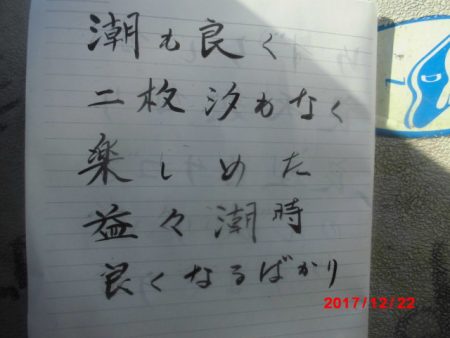 潮も良く
二枚汐もなく
楽しめた
益々潮時
良くなるばかり
2017/12/22